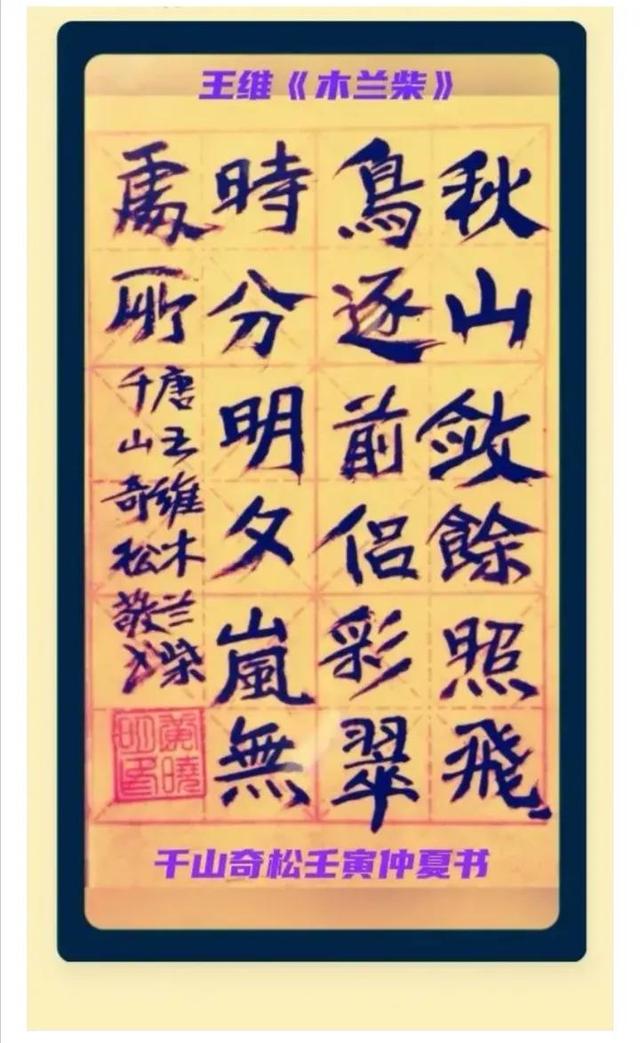 王维《木兰柴》
秋山敛餘照飛
鳥逐前侶彩翠
時分明夕嵐無
處所
唐王维木兰柴
千山奇松敬书
千山奇松壬寅仲夏书